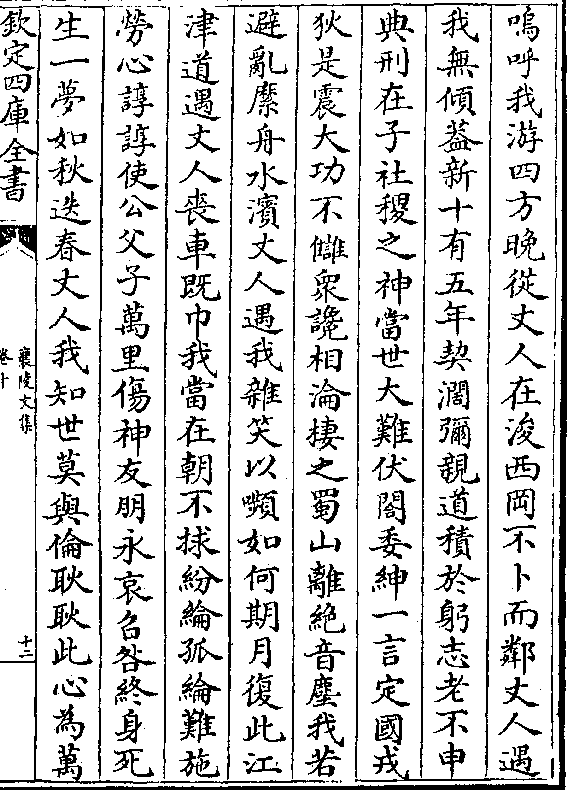 嗚呼我游四方晩從丈人在浚西岡不卜而鄰丈人遇
我無傾葢新十有五年契濶彌親道積於躬志老不申
典刑在子社稷之神當世大難伏閤委紳一言定國戎
狄是震大功不讎衆讒相淪棲之蜀山離絶音塵我若
避亂縻舟水濱丈人遇我雜笑以嚬如何期月復此江
津道遇丈人喪車既巾我當在朝不捄紛綸孤綸難施
勞心諄諄使公父子萬里傷神友朋永哀名咎終身死
生一夢如秋迭春丈人我知世莫與倫耿耿此心為萬
欽定四庫全書
襄陵文集
卷十
十二